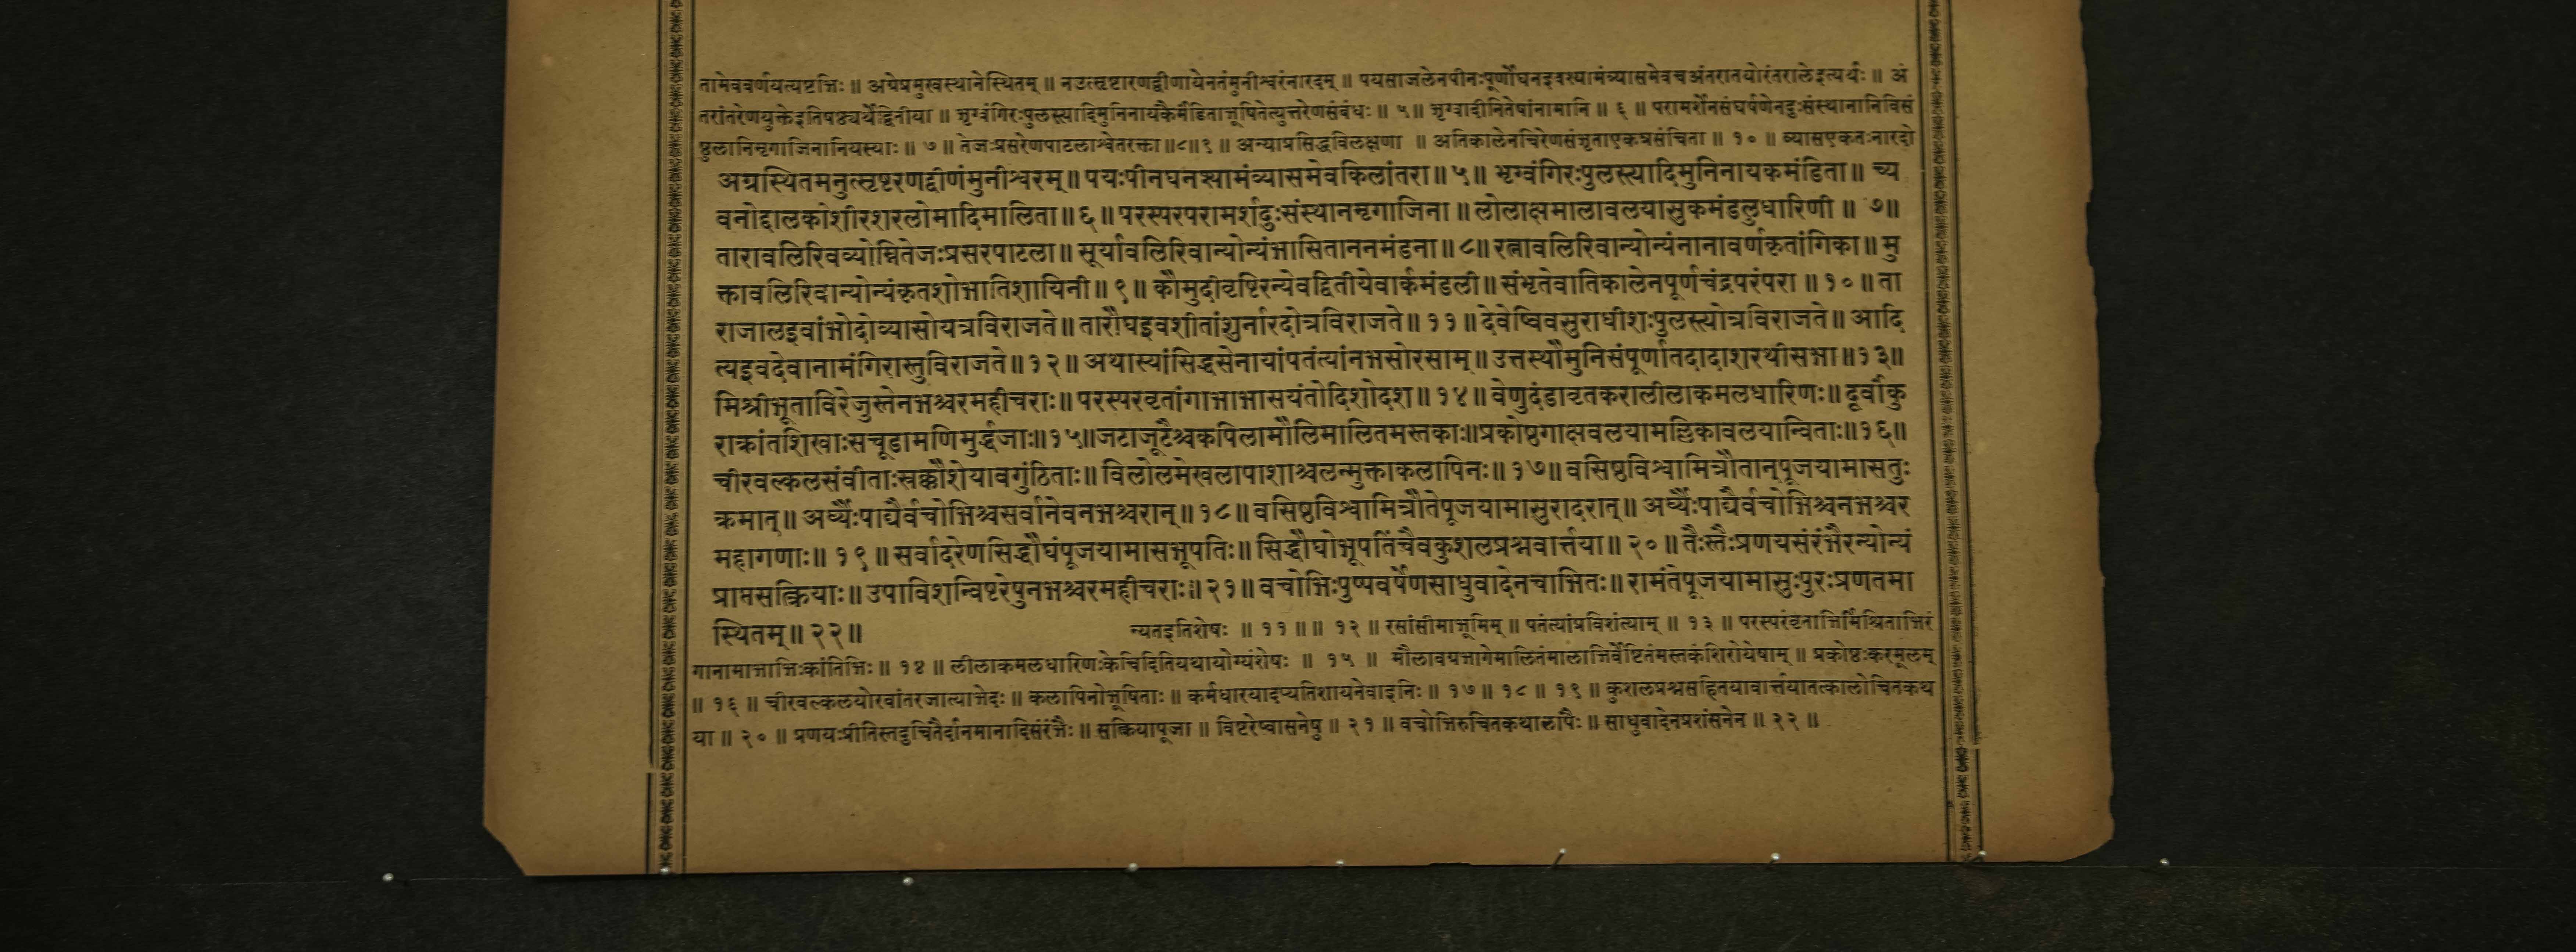 तामेववर्णयत्यष्टभिः ॥ अग्रेप्रमुखस्थानेस्थितम् ॥ नउत्सृष्टारणद्वीणायेनतंमुनीश्वरंनारदम् ॥ पयसाजलेनपीनःपूर्णोघनइवश्यामंव्यासमेवचअंतरातयोरंतरालेइत्यर्थः ॥ अं
तरांतरेणयुक्तेइतिषष्ठ्यर्थेद्वितीया ॥ भृग्वंगिरःपुलस्त्यादिमुनिनायकैर्मंडिताभूषितेत्युत्तरेणसंबंधः ॥ ५ ॥ भृग्वादीनितेषांनामानि ॥ ६ ॥ परामर्शेनसंघर्षणेनदुःसंस्थानानिविसं
ष्ठुलानिमृगाजिनानियस्याः ॥ ७ ॥ तेजःप्रसरेणपाटलाश्वेतरक्ता ॥८॥९ ॥ अन्याप्रसिद्धविलक्षणा ॥ अतिकालेनचिरेणसंभृताएकत्रसंचिता ॥ १० ॥ व्यासएकतःनारदो
अग्रस्थितमनुत्सृष्टरणद्वीणंमुनीश्वरम् ॥ पयःपीनघनश्यामंव्यासमेवकिलांतरा ॥ ५ ॥ भृग्वंगिरःपुलस्त्यादिमुनिनायकमंडिता ॥ च्य
वनोद्दालकोशीरशरलोमादिमालिता ॥ ६ ॥ परस्परपरामर्शदुःसंस्थानमृगाजिना ॥ लोलाक्षमालावलयासुकमंडलुधारिणी ॥ ७॥
तारावलिरिवव्योम्नितेजःप्रसरपाटला ॥ सूर्यावलिरिवान्योन्यंभासिताननमंडना ॥ ८ ॥ रत्नावलिरिवान्योन्यंनानावर्णकृतांगिका ॥ मु
क्तावलिरिवान्योन्यंकृतशोभातिशायिनी ॥ ९ ॥ कौमुदीवृष्टिरन्येवद्वितीयेवार्कमंडली ॥ संभृतेवातिकालेनपूर्णचंद्रपरंपरा ॥ १० ॥ ता
राजालइवांभोदोव्यासोयत्रविराजते ॥ तारौघइवशीतांशुर्नारदोत्रविराजते ॥ ११ ॥ देवेष्विवसुराधीशःपुलस्त्योत्रविराजते ॥ आदि
त्यइवदेवानामंगिरास्तुविराजते ॥ १२ ॥ अथास्यांसिद्धसेनायांपतंत्यांनभसोरसाम् ॥ उत्तस्थौमुनिसंपूर्णातदादाशरथीसभा ॥१३॥
मिश्रीभूताविरेजुस्तेनभश्चरमहीचराः ॥ परस्परवृतांगाभाभासयंतोदिशोदश ॥ १४ ॥ वेणुदंडावृतकरालीलाकमलधारिणः ॥ दूर्वांकु
राक्रांतशिखाःसचूडामणिमुर्द्धजाः ॥१५॥जटाजूटैश्चकपिलामौलिमालितमस्तकाः॥प्रकोष्ठगाक्षवलयामल्लिकावलयान्विताः॥१६॥
चीरवल्कलसंवीताःस्रक्कौशेयावगुंठिताः ॥ विलोलमेखलापाशाश्चलन्मुक्ताकलापिनः ॥ १७ ॥ वसिष्ठविश्वामित्रौतान्पूजयामासतुः
क्रमात् ॥ अर्घ्यैःपाद्यैर्वचोभिश्चसर्वानेवनभश्चरान् ॥ १८ ॥ वसिष्ठविश्वामित्रौतेपूजयामासुरादरात् ॥ अर्घ्यैःपाद्यैर्वचोभिश्चनभश्चर
महागणाः ॥ १९ ॥ सर्वादरेणसिद्धौघंपूजयामासभूपतिः ॥ सिद्धौघोभूपतिंचैवकुशलप्रश्नवार्त्तया ॥ २० ॥ तैःस्तैःप्रणयसंरंभैरन्योन्यं
प्राप्तसत्क्रियाः ॥ उपाविशन्विष्टरेषुनभश्चरमहीचराः ॥ २१ ॥ वचोभिःपुष्पवर्षेणसाधुवादेनचाभितः ॥ रामंतेपूजयामासुःपुरःप्रणतमा
स्थितम् ॥ २२ ॥
न्यतइतिशेषः ॥ ११ ॥ ॥ १२ ॥ रसांसीमाभूमिम् ॥ पतंत्यांप्रविशंत्याम् ॥ १३ ॥ परस्परंवृताभिर्मिश्रिताभिरं
गानामाभाभिःकांतिभिः ॥ १४ ॥ लीलाकमलधारिणःकेचिदितियथायोग्यंशेषः ॥ १५ ॥ मौलावग्रभागेमालितंमालाभिर्वेष्टितंमस्तकंशिरोयेषाम् ॥ प्रकोष्ठःकरमूलम्
॥ १६ ॥ चीरवल्कलयोरवांतरजात्याभेदः ॥ कलापिनोभूषिताः ॥ कर्मधारयादप्यतिशायनेवाइनिः ॥ १७ ॥ १८ ॥ १९ ॥ कुशलप्रश्नसहितयावार्त्तयातत्कालोचितकथ
या ॥ २० ॥ प्रणयःप्रीतिस्तदुचितैर्दानमानादिसंरंभैः ॥ सत्क्रियापूजा ॥ विष्टरेष्वासनेषु ॥ २१ ॥ वचोभिरुचितकथालापैः ॥ साधुवादेनप्रशंसनेन ॥ २२ ॥